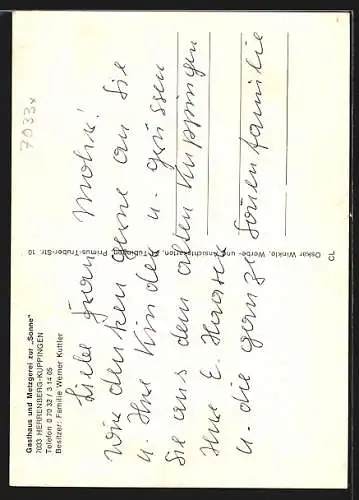 7033x
Gasthaus und Metzgerei zur „Sonne"
7033 HERRENBERG-KUPPINGEN
Telefon 0 70 32 / 3 14 05
Besitzer: Familie Werner Kuttler
Liebe Frau Mohr!
Wir denken gerne an Sie
u. Ihre Kinder u. grüssen
Sie aus dem alten Kuppingen
Ihre E. Haarer
u. die ganze Sonnenfamilie
Oskar Winkle, Werbe- und Ansichtskarten, 74 Tübingen, Primus-Truber-Str. 10
CL